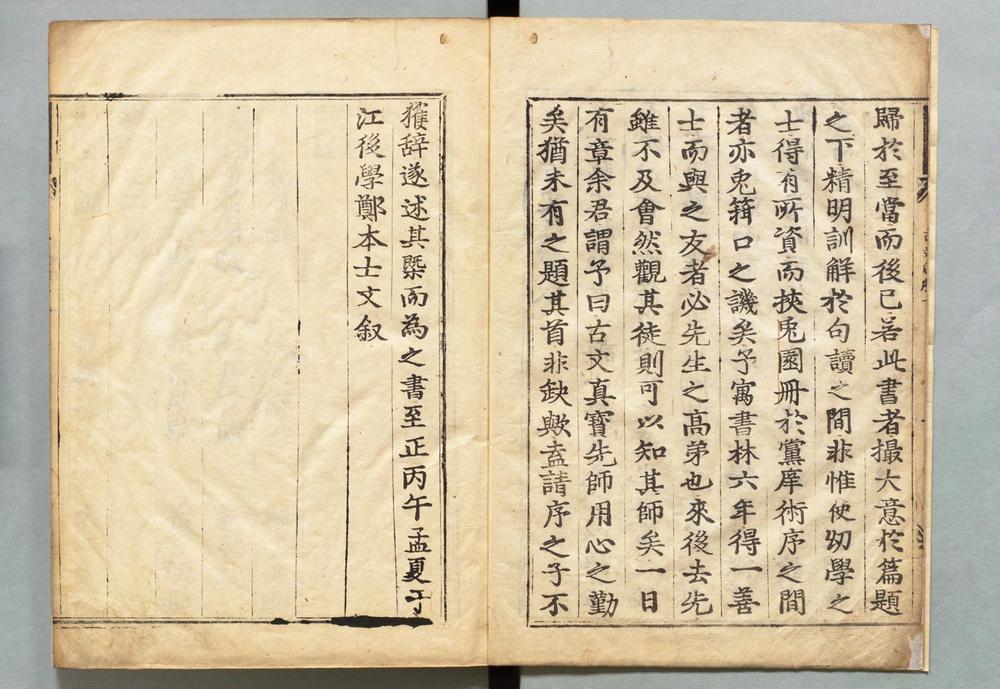 歸於至當而後已若此書者撮大意於篇題
之下精明訓解於句讀之間非惟使幼學之
士得有所資而挾兎園册於黨庠術序之間
者亦免箝口之譏矣予寓書林六年得一善
士而與之友者必先生之高弟也來後去先
雖不及會然觀其徒則可以知其師矣一日
有章余君謂予曰古文真寳先師用心之勤
矣猶未有之題其首非缺歟盍請序之予不
獲辞遂述其槩而為之書至正丙午孟夏丁
江後學鄭本士文叙